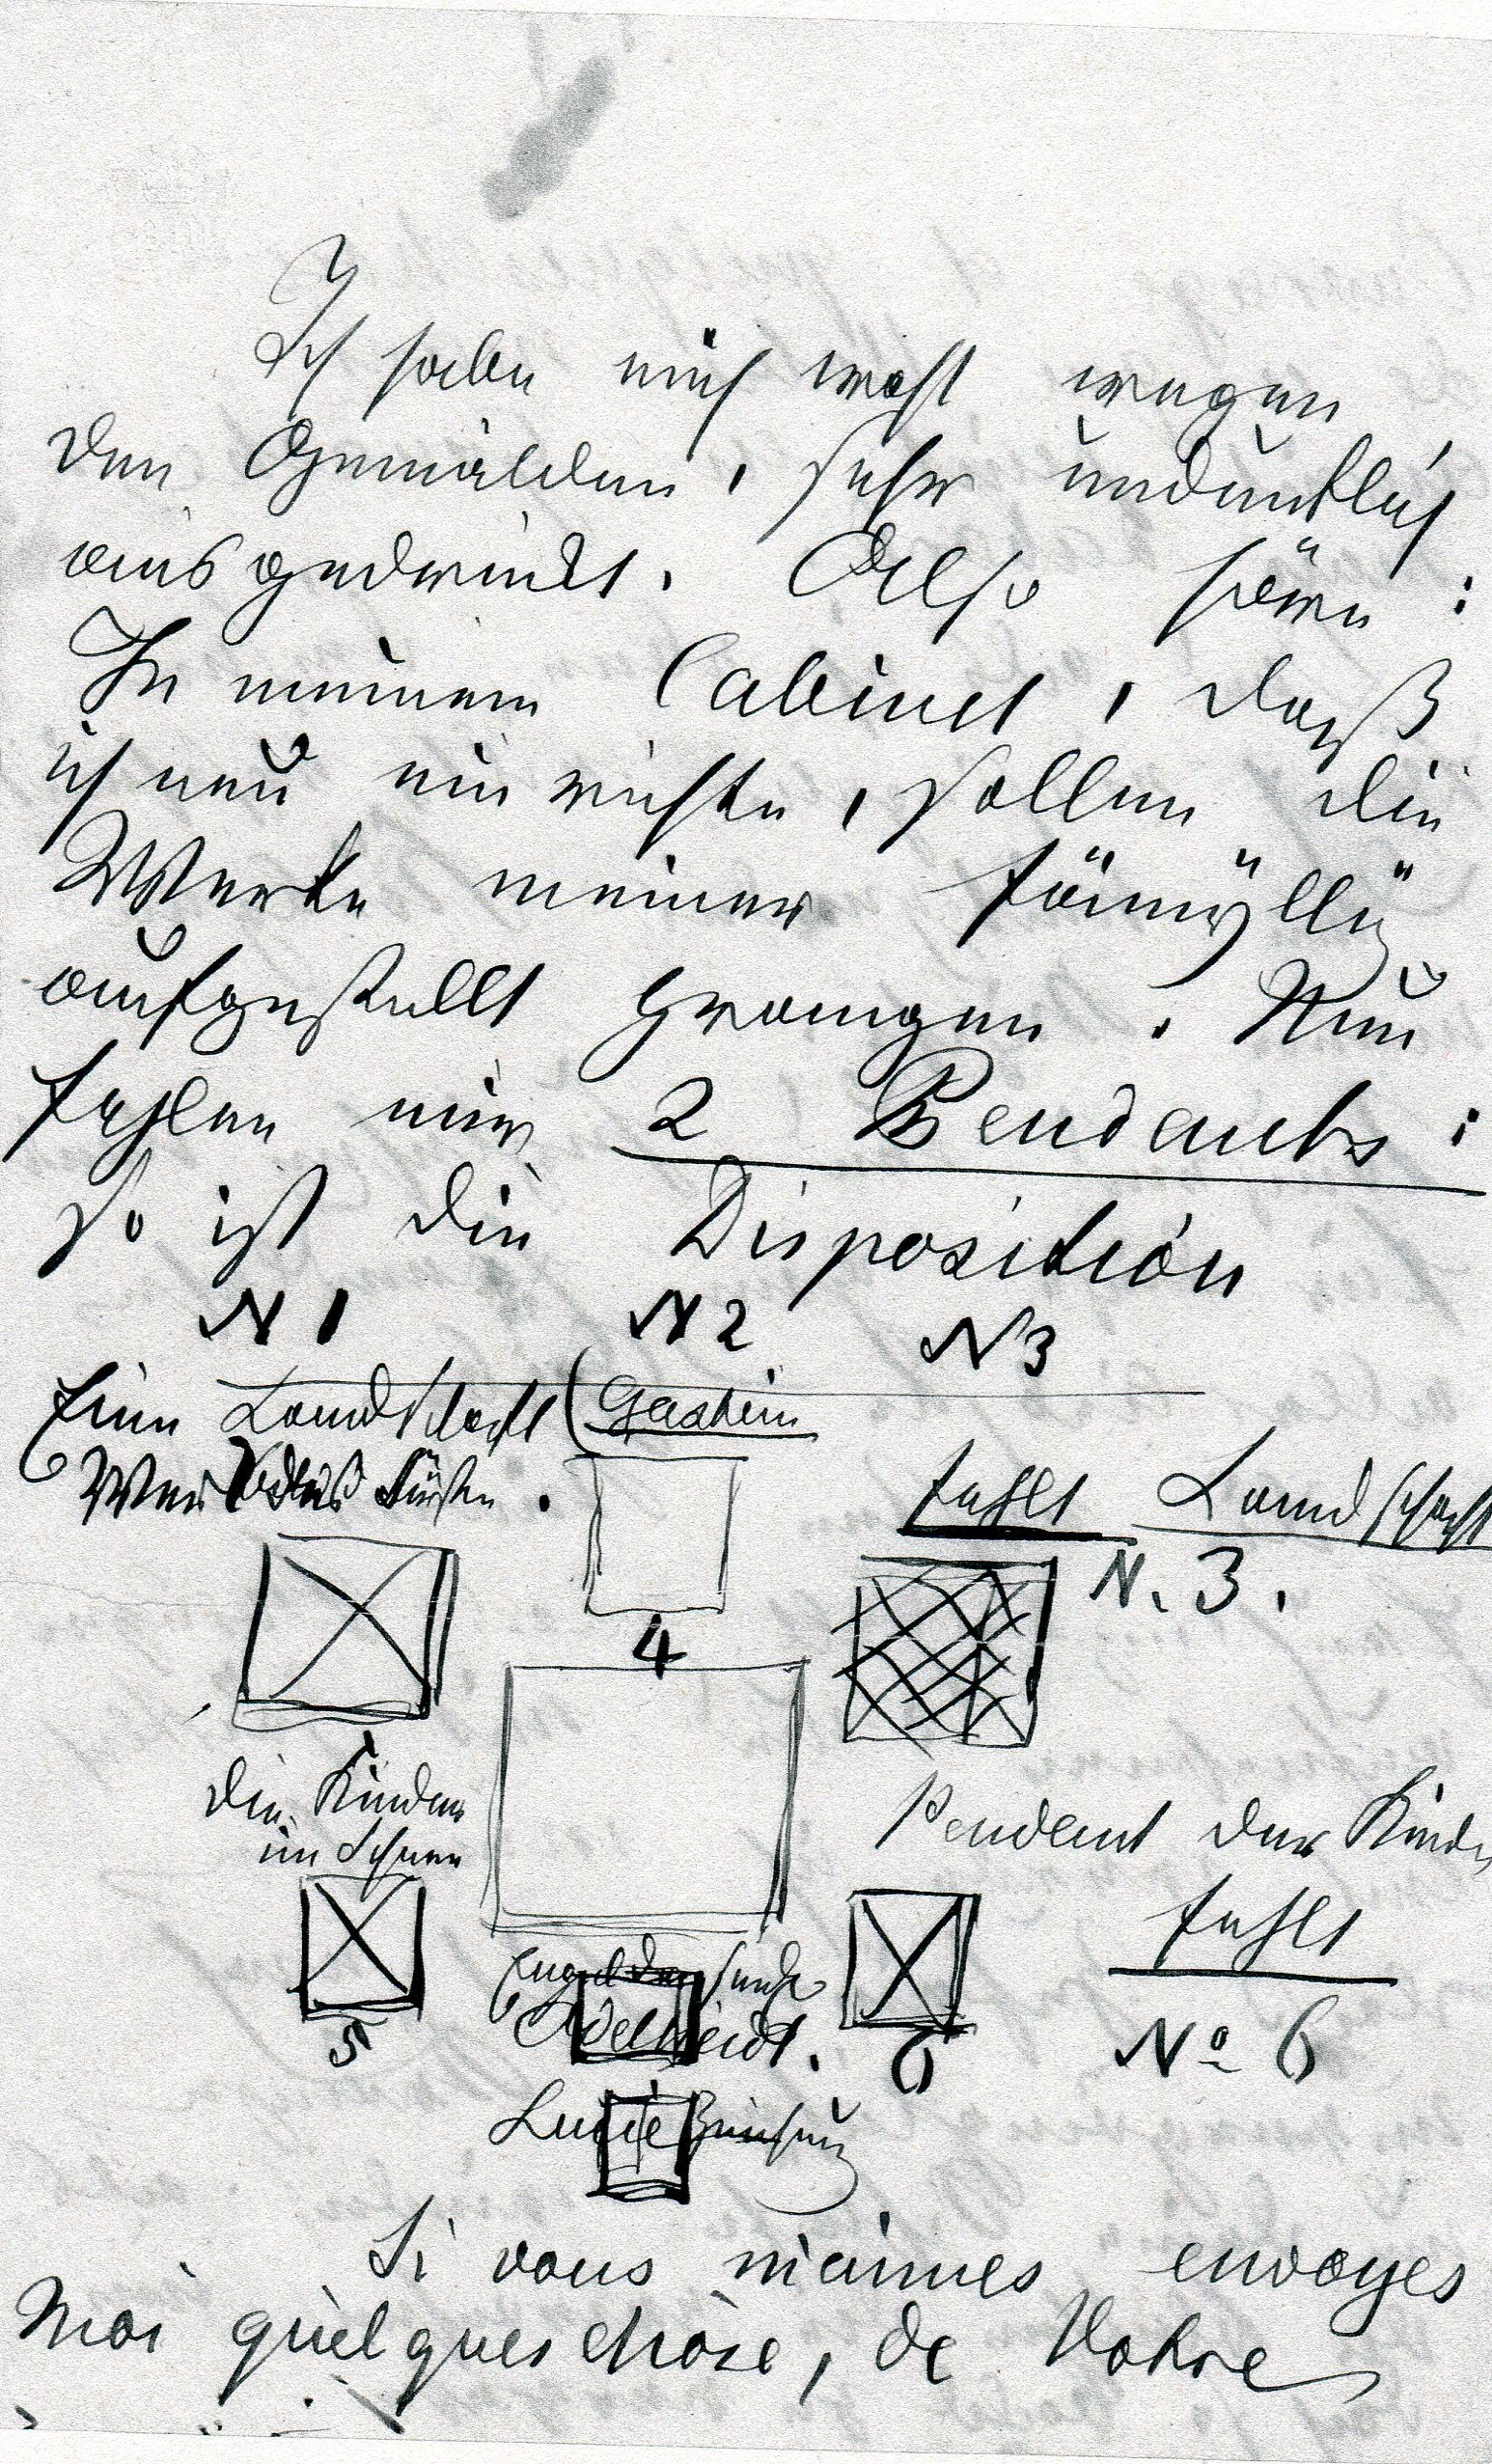 Ich habe mich wohl wegen
den Gemälden, sehr undeutlich
ausgedrückt. Also höre:
In meinem Cabinet, daß
ich neu einrichte, sollen die
Werke meiner Fämÿllÿ
aufgestellt prangen. Nun
fehlen mir 2 Pendants:
So ist die Disposition
N 1 N 2 N 3
Eine Landschaft (Gastein
Fehlt Landschaft
N. 3.
4
Die Kinder
im Schnee
Pendent der Kinder
Fehlt
No 6
5
6
Engel der
Adelheidt.
Lucie Zeichnung
Si vous m'aimes envoyes
moi quelques chose, de Votre